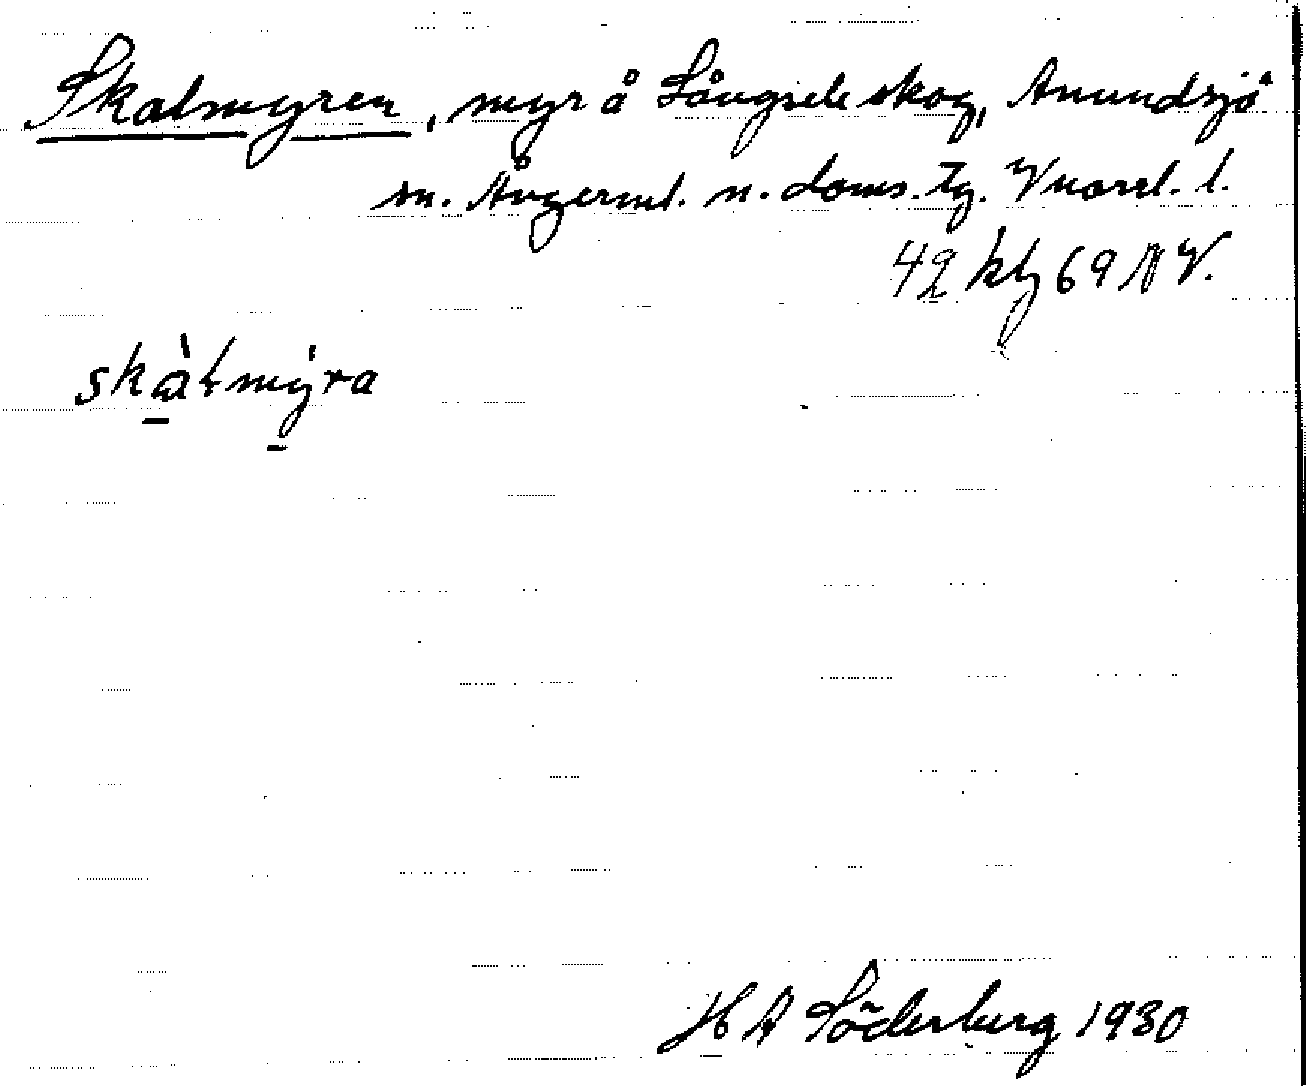 Skalmyren, myr å Långsele skog, Anundsjö
sn. Ångerml. n. doms. tg. Vnorrl. l.
42 kbl 69 NV.
skàlmýra
H A Söderberg 1930